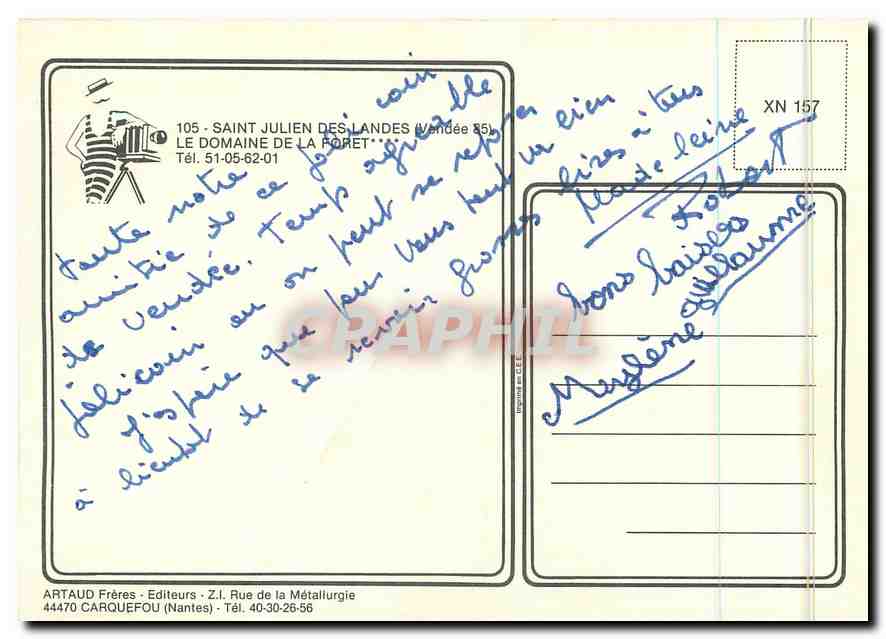 105 - SAINT JULIEN DES LANDES (Vendée 85)
LE DOMAINE DE LA FORET****
Tél. 51-05-62-01
XN 157
toute notre
amitié de ce joli coin
de vendée. Temps agréable
joli coin ou on peut se reposer
J'espère que pour vous tout va bien
à bientot de se revoir grosses bises à tous
Madeleine
Robert
bons baisers
Guillaume
Mylène
CPAPHIL
Imprimé en C.E.E.
ARTAUD Frères - Editeurs - Z.I. Rue de la Métallurgie
44470 CARQUEFOU (Nantes) - Tél. 40-30-26-56